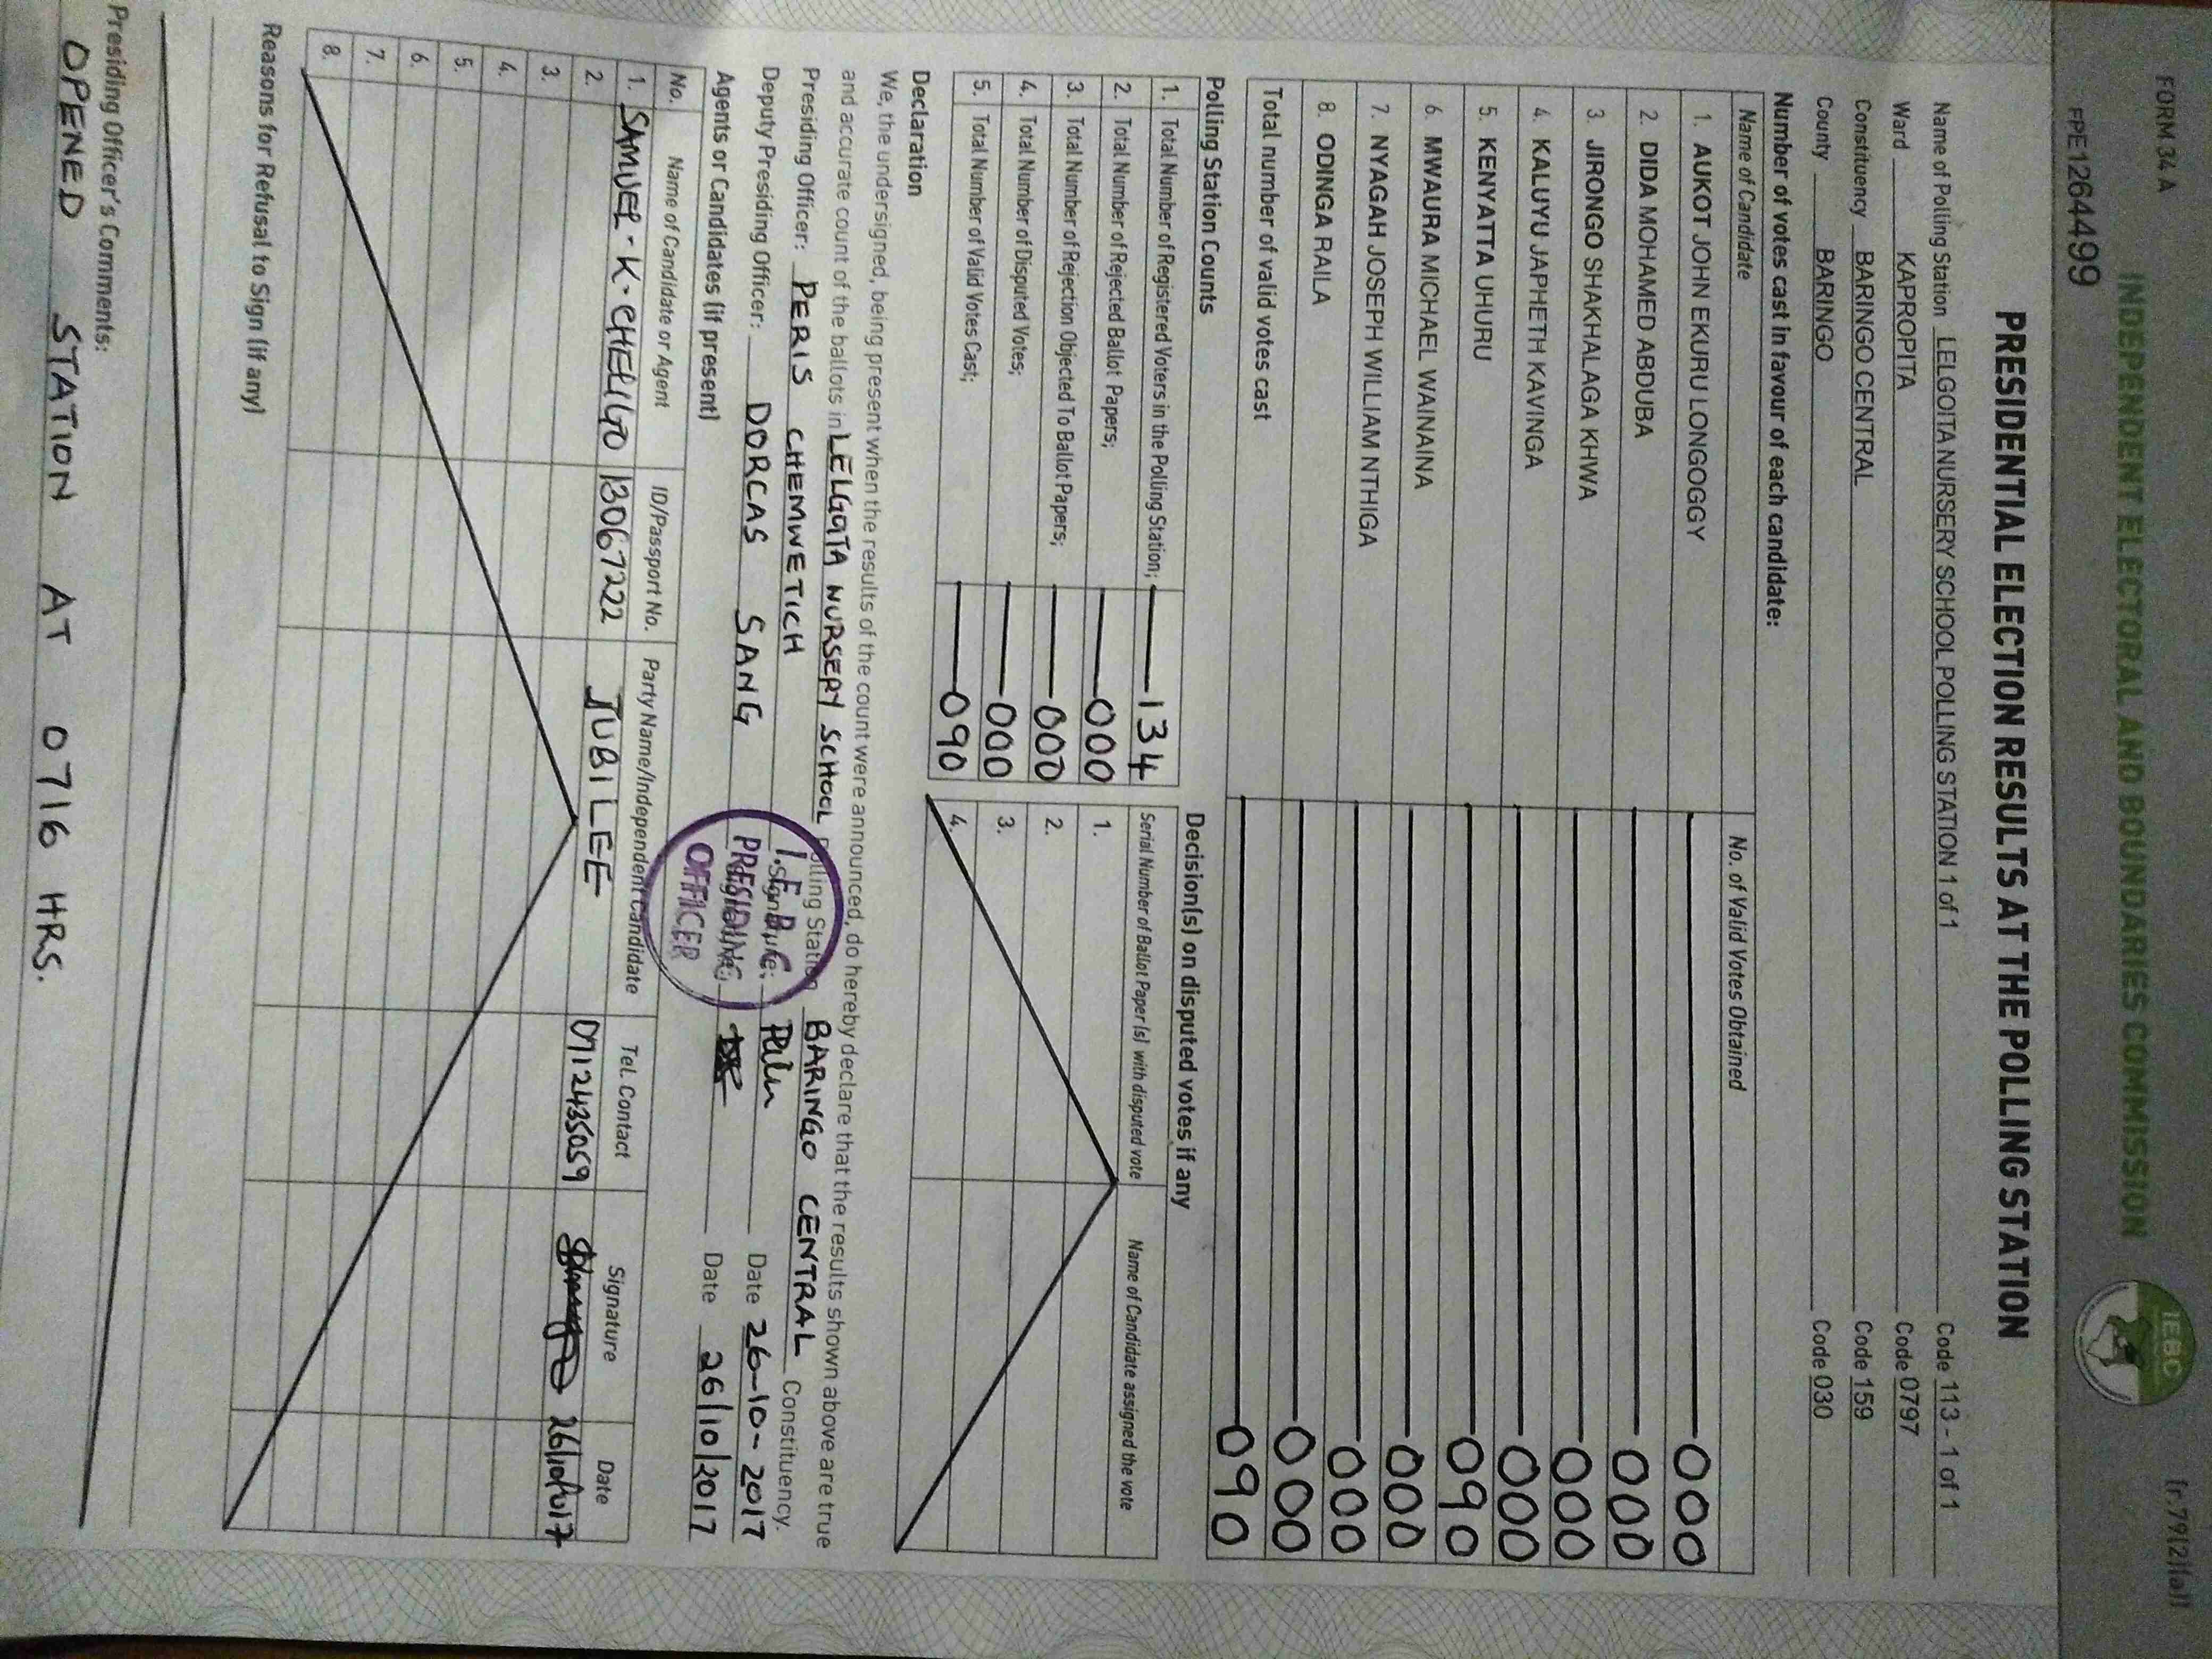 FORM 34 A
(r.79(2)(a))
INDEPENDENT ELECTORAL AND BOUNDARIES COMMISSION
IEBC
FPE1264499
PRESIDENTIAL ELECTION RESULTS AT THE POLLING STATION
Name of Polling Station LELGOITA NURSERY SCHOOL POLLING STATION 1 of 1 Code 113 - 1 of 1
Ward KAPROPITA Code 0797
Constituency BARINGO CENTRAL Code 159
County BARINGO Code 030
Number of votes cast in favour of each candidate:
Name of Candidate No. of Valid Votes Obtained
1. AUKOT JOHN EKURU LONGOGGY 000
2. DIDA MOHAMED ABDUBA 000
3. JIRONGO SHAKHALAGA KHWA 000
4. KALUYU JAPHETH KAVINGA 000
5. KENYATTA UHURU 090
6. MWAURA MICHAEL WAINAINA 000
7. NYAGAH JOSEPH WILLIAM NTHIGA 000
8. ODINGA RAILA 000
Total number of valid votes cast 090
Polling Station Counts
1. Total Number of Registered Voters in the Polling Station; 134
2. Total Number of Rejected Ballot Papers; 000
3. Total Number of Rejection Objected To Ballot Papers; 000
4. Total Number of Disputed Votes; 000
5. Total Number of Valid Votes Cast; 090
Decision(s) on disputed votes if any
Serial Number of Ballot Paper (s) with disputed vote Name of Candidate assigned the vote
1.
2.
3.
4.
Declaration
We, the undersigned, being present when the results of the count were announced, do hereby declare that the results shown above are true
and accurate count of the ballots in LELGOITA NURSERY SCHOOL Polling Station BARINGO CENTRAL Constituency.
Presiding Officer: PERIS CHEMWETICH Signature: Date 26-10-2017
Deputy Presiding Officer: DORCAS SANG Signature: Date 26/10/2017
I.E.B.C
PRESIDING
OFFICER
Agents or Candidates (if present)
No. Name of Candidate or Agent ID/Passport No. Party Name/Independent Candidate Tel. Contact Signature Date
1. SAMUEL. K. CHELIGO 13067222 JUBILEE 0712435059 26/10/2017
2.
3.
4.
5.
6.
7.
8.
Reasons for Refusal to Sign (if any)
Presiding Officer's Comments:
OPENED STATION AT 0716 HRS.